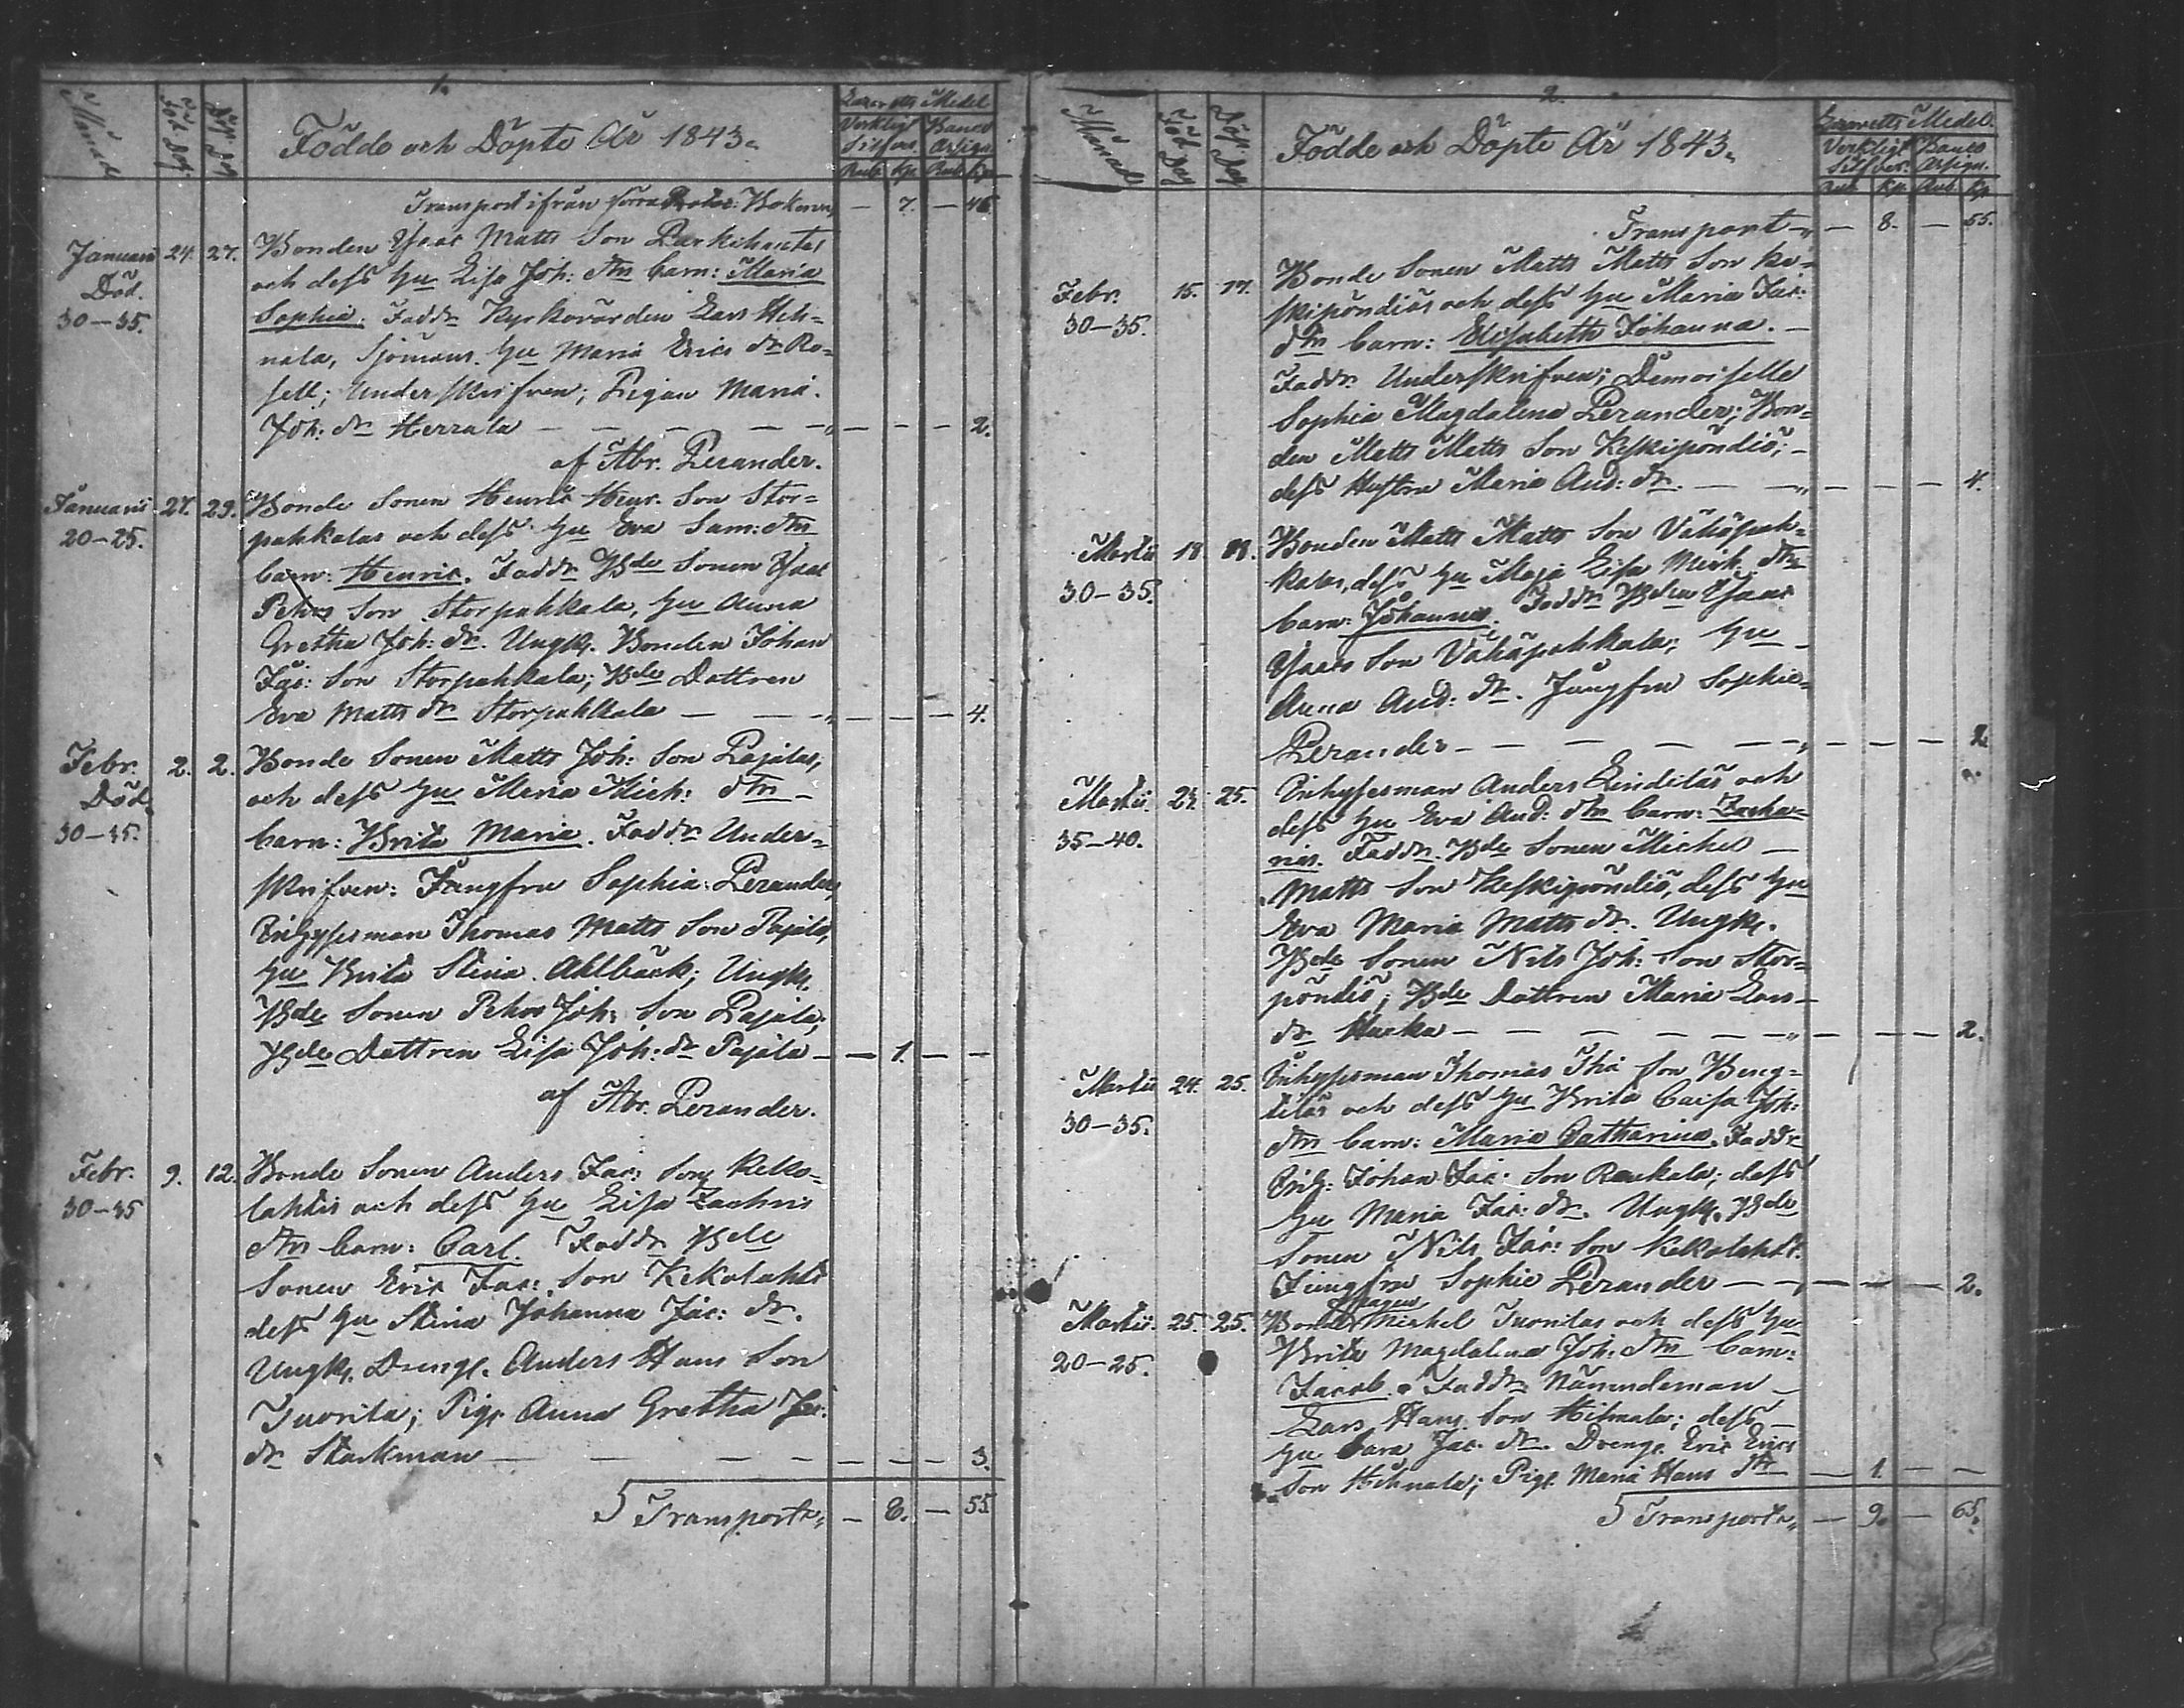 1.
Månad Föd. Dag Döp. Dag Födde och Döpte År 1843. Lazaretts Medel
Verkligt Silfver Banco Assign.
Rub. Kp. Rub. Kp.
Transport ifrån förra Boken — 7. — 46
Januarii 24. 27. Bonden Isaac Matts Son Parkihantas
Död. och dess Hu Lisa Joh: dtrs barn: Maria
30—35. Sophia. Faddr Kyrkovärden Lars Hih-
nala, Sjömans Hu Maria Erics dr Ro-
sell; Underskrifven; Pigan Maria
Joh: dr Herrala — — — — 2.
af Abr. Perander.
Januarii 27. 29. Bonde Sonen Henric Henr. Son Stor-
20—25. pahkalas och dess Hu Eva Sam: dtrs
barn: Henric. Faddr Bde Sonen Isaac
Pehrs Son Storpahkala, Hu Anna
Gretha Joh: dr. Ungk. Bonden Johan
Jac: Son Storpahkala; Bde Dottren
Eva Matts dr Storpahkala — — — 4.
Febr. 2. 2. Bonde Sonen Matts Joh: Son Pajalas,
Död. och dess Hu Maria Mich: dtrs
30—35. barn: Brita Maria. Faddr Under-
skrifven: Jungfru Sophia Perander,
Inhysesman Thomas Matts Son Pajala,
Hu Brita Stina Ahlbäck; Ungk.
Bde Sonen Pehr Joh: Son Pajala;
Bde Dottren Lisa Joh: dr Pajala — 1. — —
af Abr. Perander.
Febr. 9. 12. Bonde Sonen Anders Jac: Son Keko-
30—35 lahtis och dess Hu Lisa Zachris
dtrs barn: Carl. Faddr Bde
Sonen Eric Jac: Son Kekolahti
dess Hu Stina Johanna Jac: dr.
Ungk. Dreng. Anders Hans Son
Tuorila; Pig. Anna Gretha Jac:
dr Starkman — — — — 3.
5 Transport — 8. — 55
2.
Månad Föd. Dag Döp. Dag Födde och Döpte År 1843. Lazaretts Medel.
Verkligt Silfver: Banco Assign.
Rub. Kp. Rub. Kp
Transport — 8. — 55.
Febr. 15. 17. Bonde Sonen Matts Matts Son Ke-
30—35. skipöndiös och dess Hu Maria Jac:
dtrs barn: Elisabeth Johanna. —
Faddr. Underskrifven; Demoiselle
Sophia Magdalena Perander; Bon-
den Matts Matts Son Keskipöndiö; —
dess Hustru Maria And: dr. — — — 4.
Martii 18. Bonden Matts Matts Son Vähäpah-
30—35. kalas, dess Hu Maja Lisa Mich: dtrs
barn: Johannes. Faddr Bden Isaac
Isaacs Son Vähäpahkala; Hu —
Anna And: dr. Jungfru Sophie
Perander — — — —
Martii 24. 25. Inhysesman Anders Linditäs och
35—40. dess Hu Eva And: dtrs barn: Zacha-
rias. Faddr. Bde Sonen Michel —
Matts Son Keskipöndiö, dess Hu
Eva Maria Matts dr. Ungk.
Bde Sonen Nils Joh: Son Stor-
pöndiö; Bde Dottren Maria Lars
dr Harka — — — — 2.
Martii 24. 25. Inhysesman Thomas Son Beng-
30—35. litäs och dess Hu Brita Caisa Joh:
dtrs barn: Maria Catharina. Faddr
Inh: Johan Jac: Son Raukala; dess
Hu Maria Jac: dr. Ungk. Bde
Sonen Nils Jac: Son Kekolahti.
Jungfru Sophie Perander — — — 2.
Martii. 25. 25. Bonde Mågen Michel Tuorilas och dess Hu
20—25. Brita Magdalena Joh: dtrs barn:
Jacob. Faddr Nämndeman —
Lars Hans Son Hihnala; dess —
Hu Sara Jac: dr. Dreng. Eric Erics
Son Hihnala; Pig. Maria Hans dr — 1. — —
5 Transport — 9. — 65.